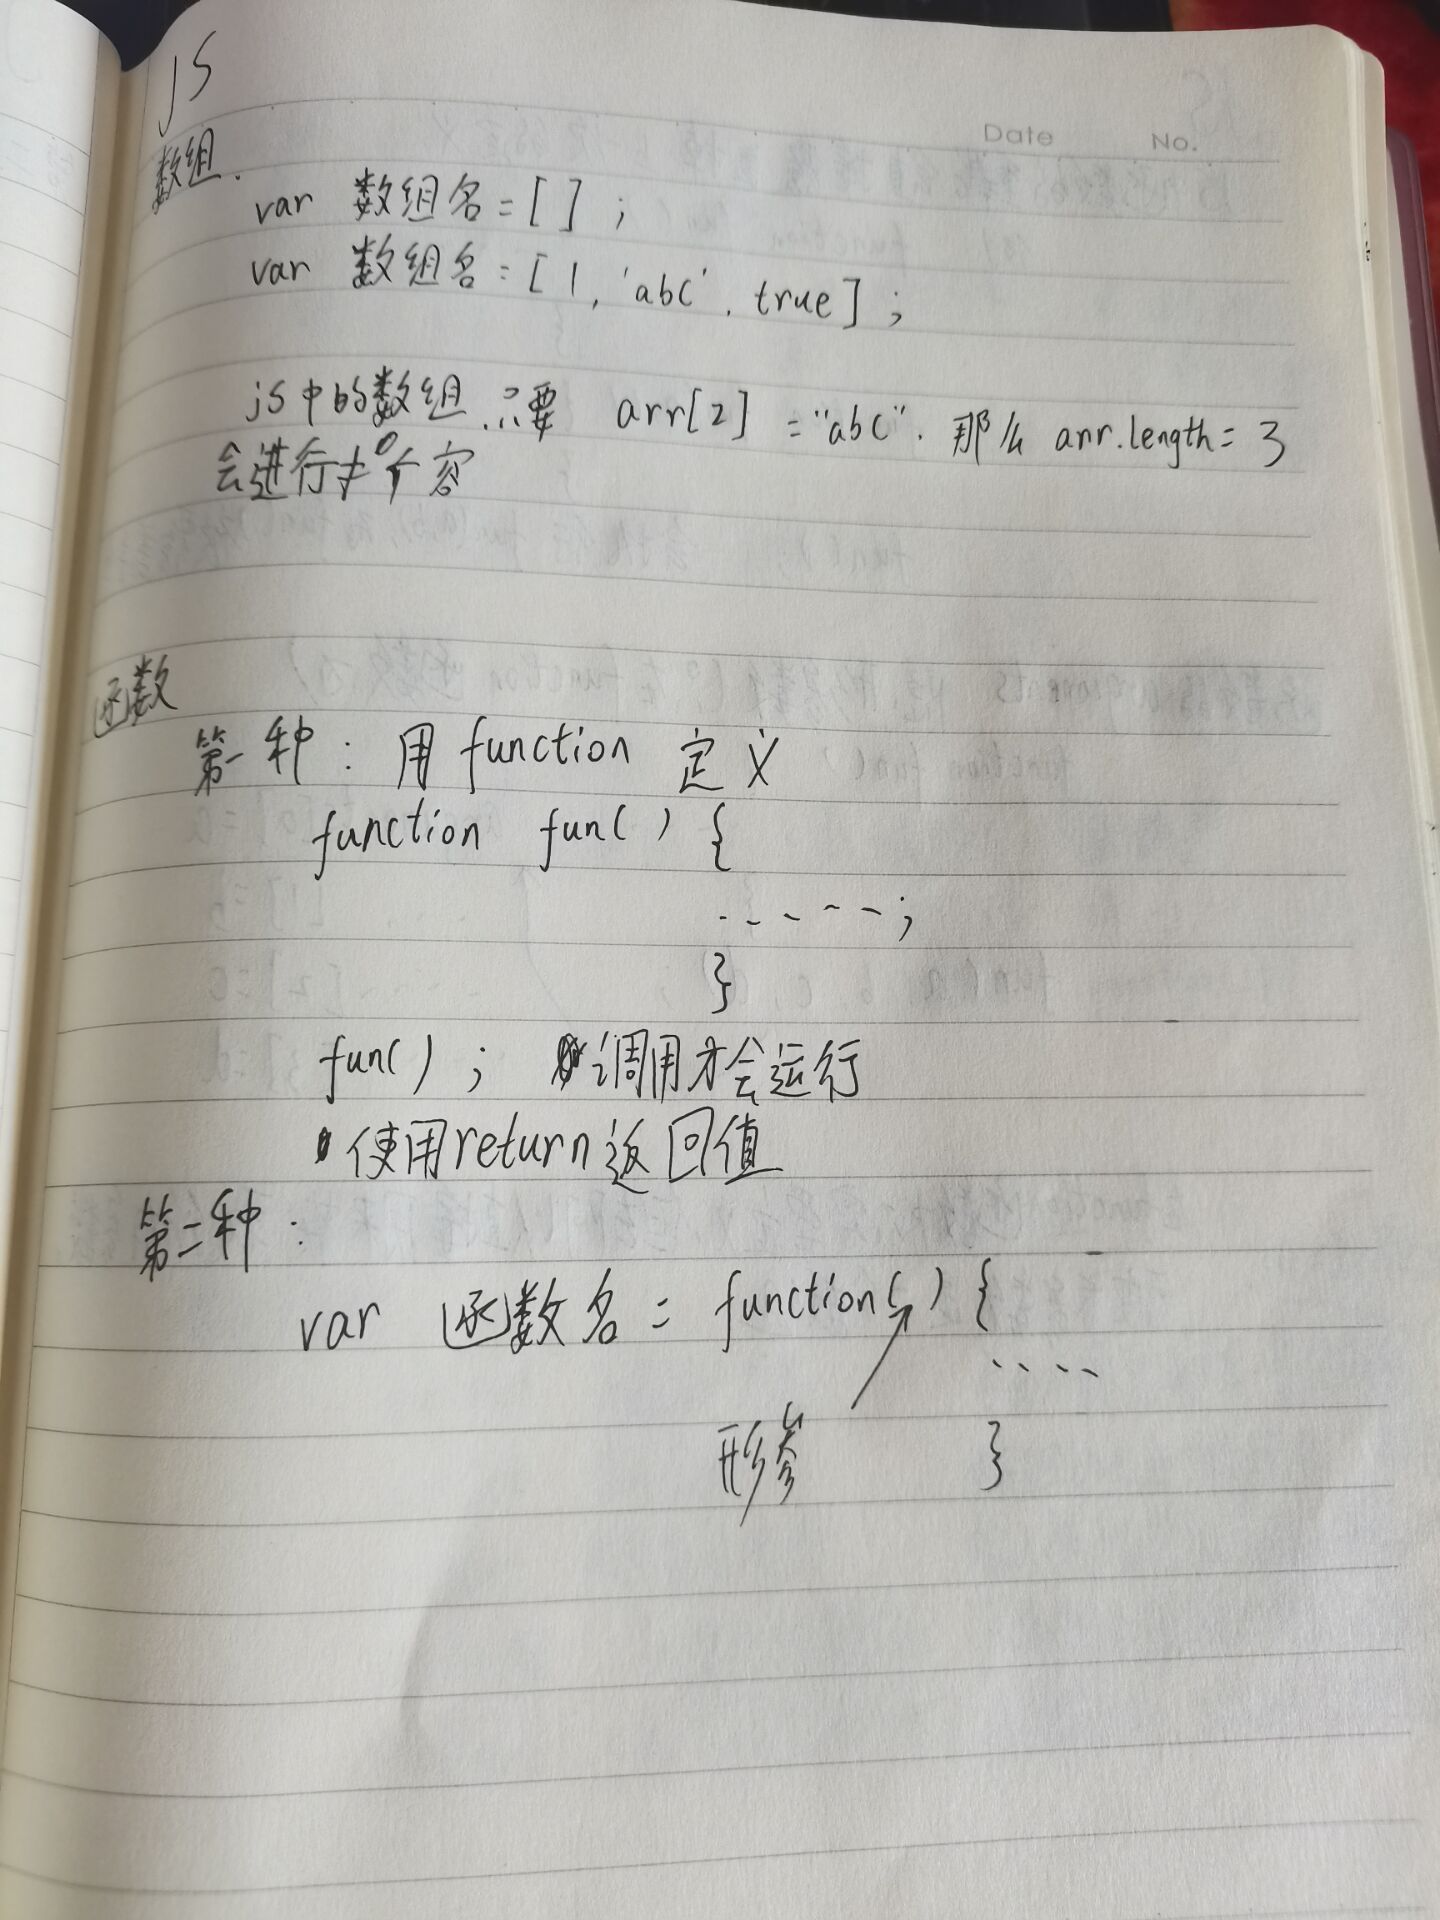 js
Date No.
数组.
var 数组名=[];
var 数组名=[1,'abc',true];
js中的数组.只要 arr[2]="abc".那么 arr.length=3
会进行扩容
函数
第一种:用function 定义
function fun(){
......;
}
fun(); 调用才会运行
使用return返回值
第二种:
var 函数名=function(){
....
形参 }